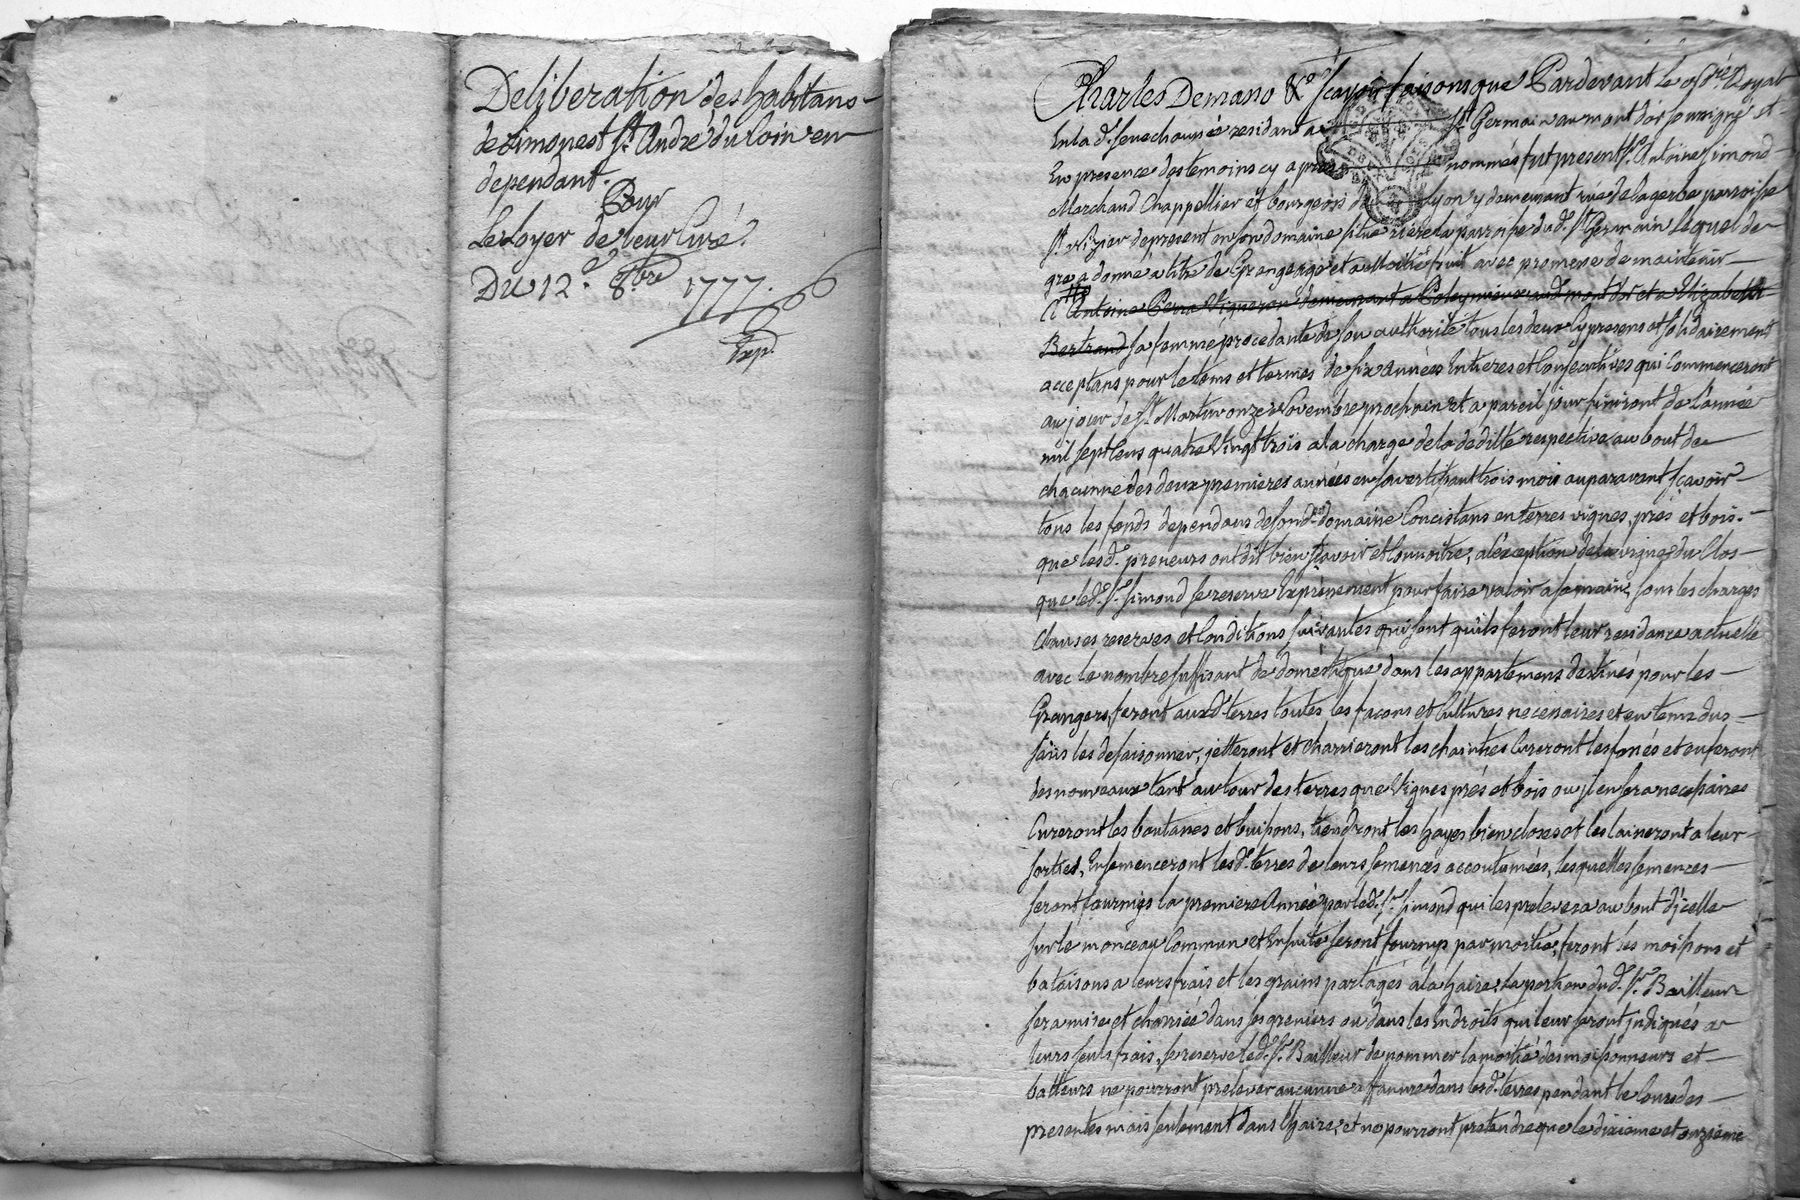 Deliberation des habitans
de Limonest St. André du Coin en
dependant.
Pour
Le Loyer de leur Curé.
Du 12e. 8bre 1777.
Exp.
Charles Demaso &c. sçavoir faisons que Pardevant le Nre. Royal
En lad. senechaussée residant a St Germain au mont d'or soussigné et
En presence des temoins cy apres nommés fut present Sr. Antoine Simond
Marchand Chappellier et bourgeois de Lyon y demeurant rue de la gerbe parroisse
St. Nizier de present en son domaine situé riere la parroisse dud. St Germain Lequel de
gré a donné a titre de Grangeage et a moitié fruit avec promesse de maintenir
a Antoine Perra Vigneron demeurant a Poleymieux aud. mont d'or et a Elizabeth
Bertrand sa femme procedante de son authorité tous les deux cy presens et solidairement
acceptans pour le tems et termes de six années Entieres et Consecutives qui Commenceront
au jour de St. Martin onze Novembre prochain et a pareil jour finiront de L'année
mil sept Cens quatre Vingt trois a la charge de la deditte respective au bout de
chacunne des deux premieres années en s'avertissant trois mois auparavant sçavoir
tous les fonds dependans de sond. domaine Concistans en terres vignes, prés et bois.
que lesd. preneurs ont dit bien sçavoir et Connoitre, a l'exception de la vigne du Clos
que led. Sr. Simond se reserve Expressement pour faire valoir a sa main, sous les charges
Clauses reserves et Conditions suivantes qui sont qu'ils feront leur residance actuelle
avec le nombre suffisant de domestique dans les appartemens destinés pour les
Grangers, feront auxd. terres toutes les façons et Cultures necessaires et en tems dus
sans les desaisonner, jetteront et charrieront les chaintres Cureront les fossés et en feront
des nouveaux tant autour des terres que Vignes prés et bois ou jl en sera necessaire
Cureront les boutasses et buissons, tiendront les hayes bien closes et les laisseront a leur
sorties, Ensemenceront lesd. terres de leurs semences accoutumées, lesquelles semences
seront fournies la premiere Année par led. Sr. Simond qui les prelevera au bout d'jcelle
sur le monceau Commun et Ensuite seront fournis par moitié, feront les moissons et
bataisons a leurs frais et les grains partagés a la haire, la portion dud. Sr. Bailleur
sera mise et charriée dans ses greniers ou dans les Endroits qui leur seront jndiqués a
leurs seuls frais, se reserve led. Sr. Bailleur de nommer la moitié des moissonneurs et
batteurs ne pourront prelever aucunne affanure dans lesd. terres pendant le Cours des
presentes mais seulement dans l'haire, et ne pourront pretendre que le dixieme et onzieme